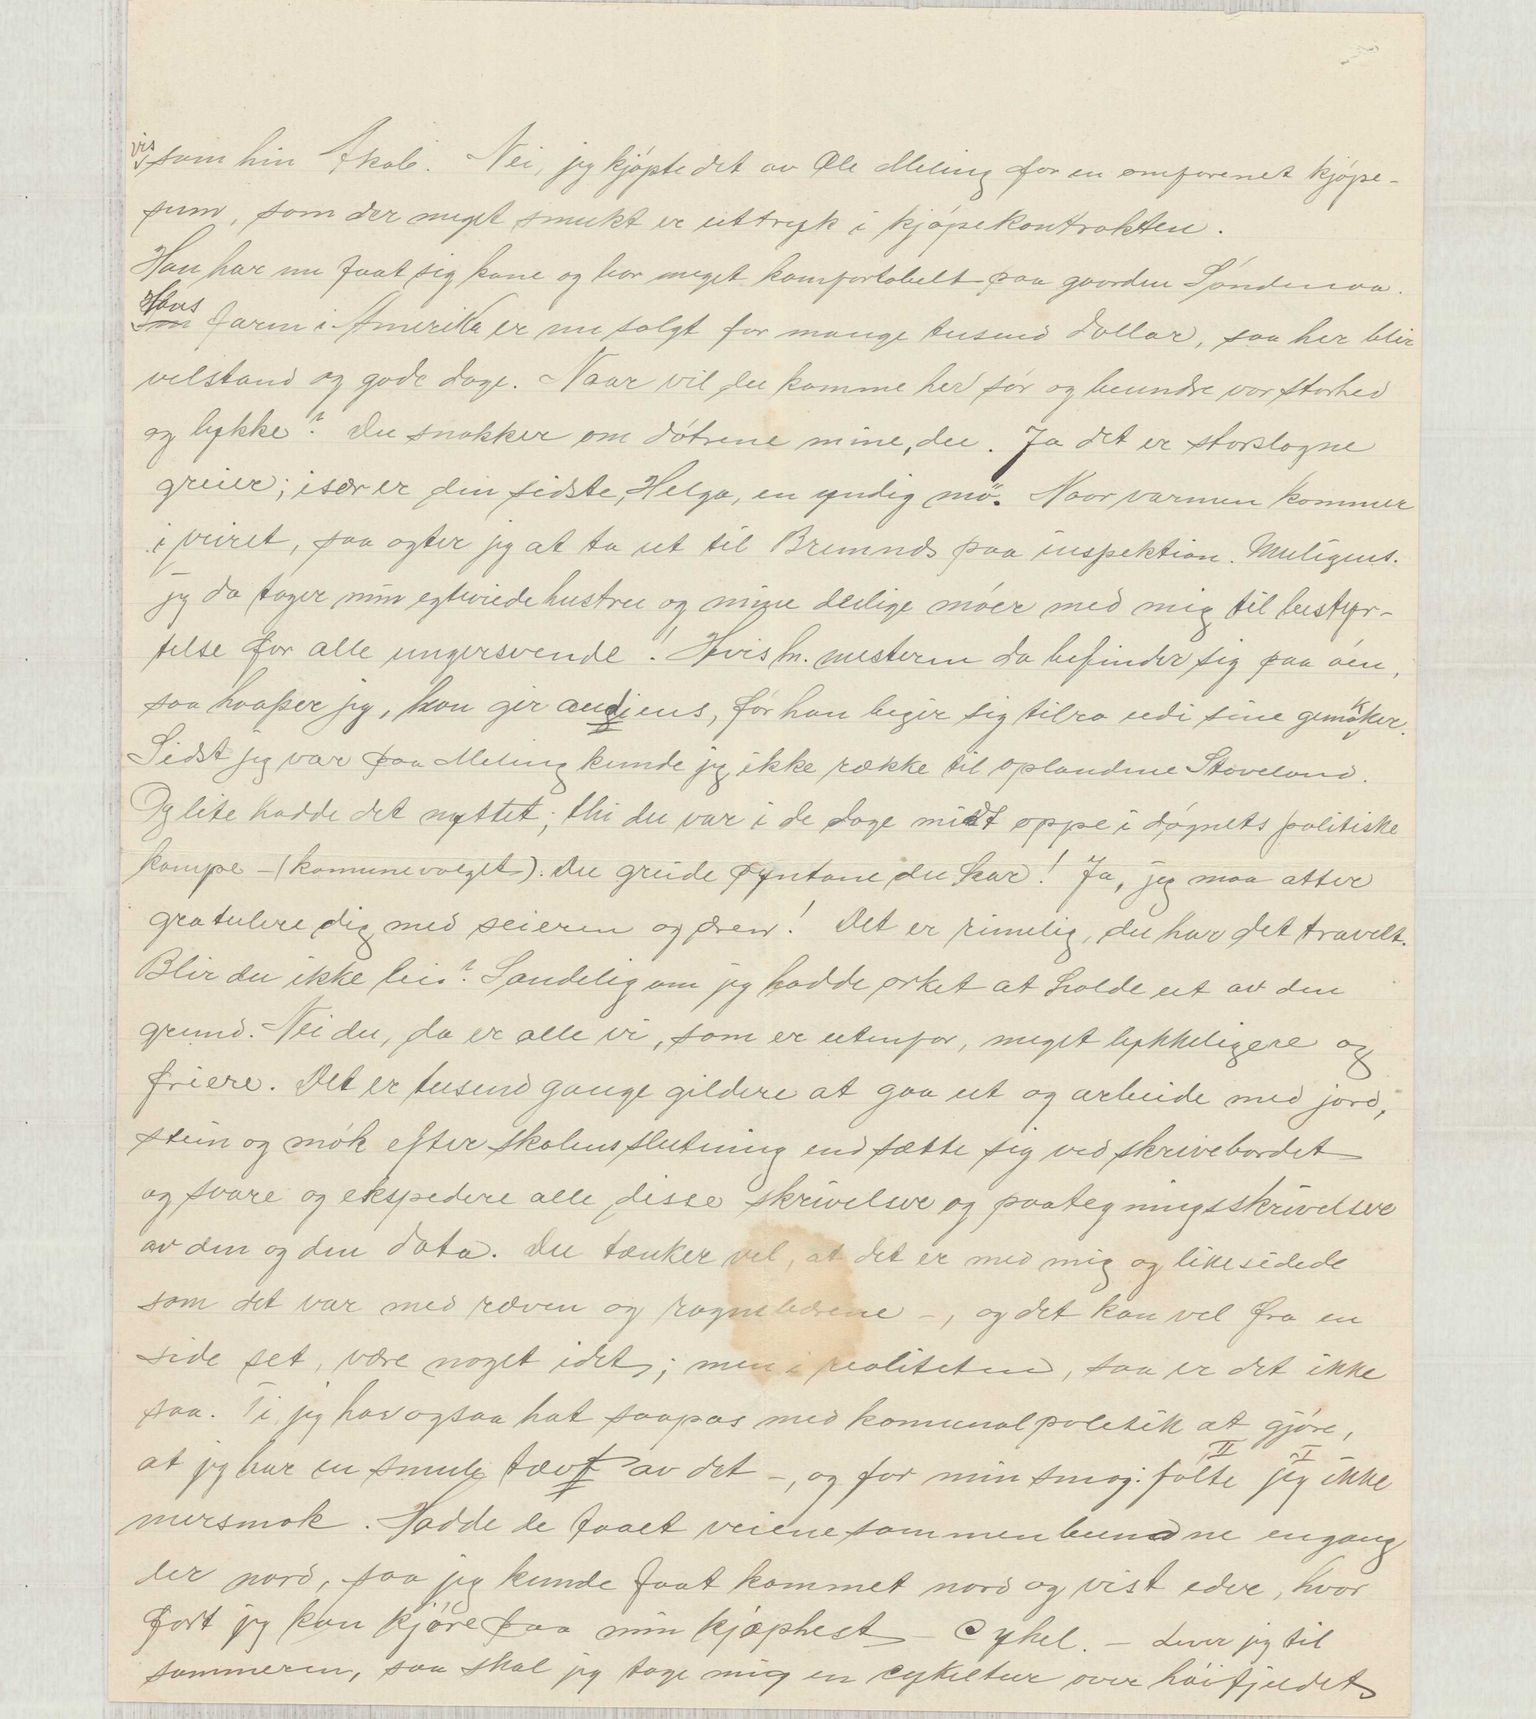 vis som hin Akab. Nei, jeg kjøpte det av Ole Meling for en omforenet kjøpe-
sum, som der meget smukt er uttryk i kjøpekontrakten.
Han har nu faat sig kone og bor meget komfortabelt paa gaarden Søndenaa.
Hans farm i Amerika er nu solgt for mange tusend dollar, saa her blir
velstand og gode dage. Naar vil du komme her sør og beundre vor storhed
og lykke? Du snakker om døtrene mine, du. Ja det er storslagne
greier; især er den sidste, Helga, en yndig mø. Naar varmen kommer
i veiret, saa agter jeg at ta ut til Bremnes paa inspektion. Muligens
jeg da tager min egtviede hustru og mine deilige møer med mig til bestyr-
telse for alle ungersvende! Hvis hr. mesteren da befinder sig paa øen,
saa haaper jeg, han gir audiens, før han begir sig tilro udi sine gemakker.
Sidst jeg var paa Meling kunde jeg ikke række til oplandene Staveland.
Og lite hadde det nyttet; thi du var i de dage midt oppe i døgnets politiske
kampe – (komunevalget). Du greide pyntane du kar! Ja, jeg maa atter
gratulere dig med seieren og æren! Det er rimelig, du har det travelt.
Blir du ikke lei? Sandelig om jeg hadde orket at holde ut av den
grund. Nei du, da er alle vi, som er utenfor, meget lykkeligere og
friere. Det er tusend gange gildere at gaa ut og arbeide med jord,
stein og møk efter skolens slutning end sætte sig ved skrivebordet
og svare og ekspedere alle disse skrivelser og paategningsskrivelser
av den og den dato. Du tænker vel, at det er med mig og likesidede
som det var med ræven og rognebærene –, og det kan vel fra en
side set, være noget i det; men i realiteten, saa er det ikke
saa. Ti jeg har ogsaa hat saapas med komunalpolitik at gjøre,
at jeg har en smule tævt av det –, og for min smag: følte II jeg I ikke
mersmak. Hadde de faaet veiene sammenbundne engang
der nord, saa jeg kunde faat kommet nord og vist eder, hvor
fort jeg kan kjøre paa min kjæphest – Cykel. – Lever jeg til
sommeren, saa skal jeg tage mig en cykeltur over høifjeldet